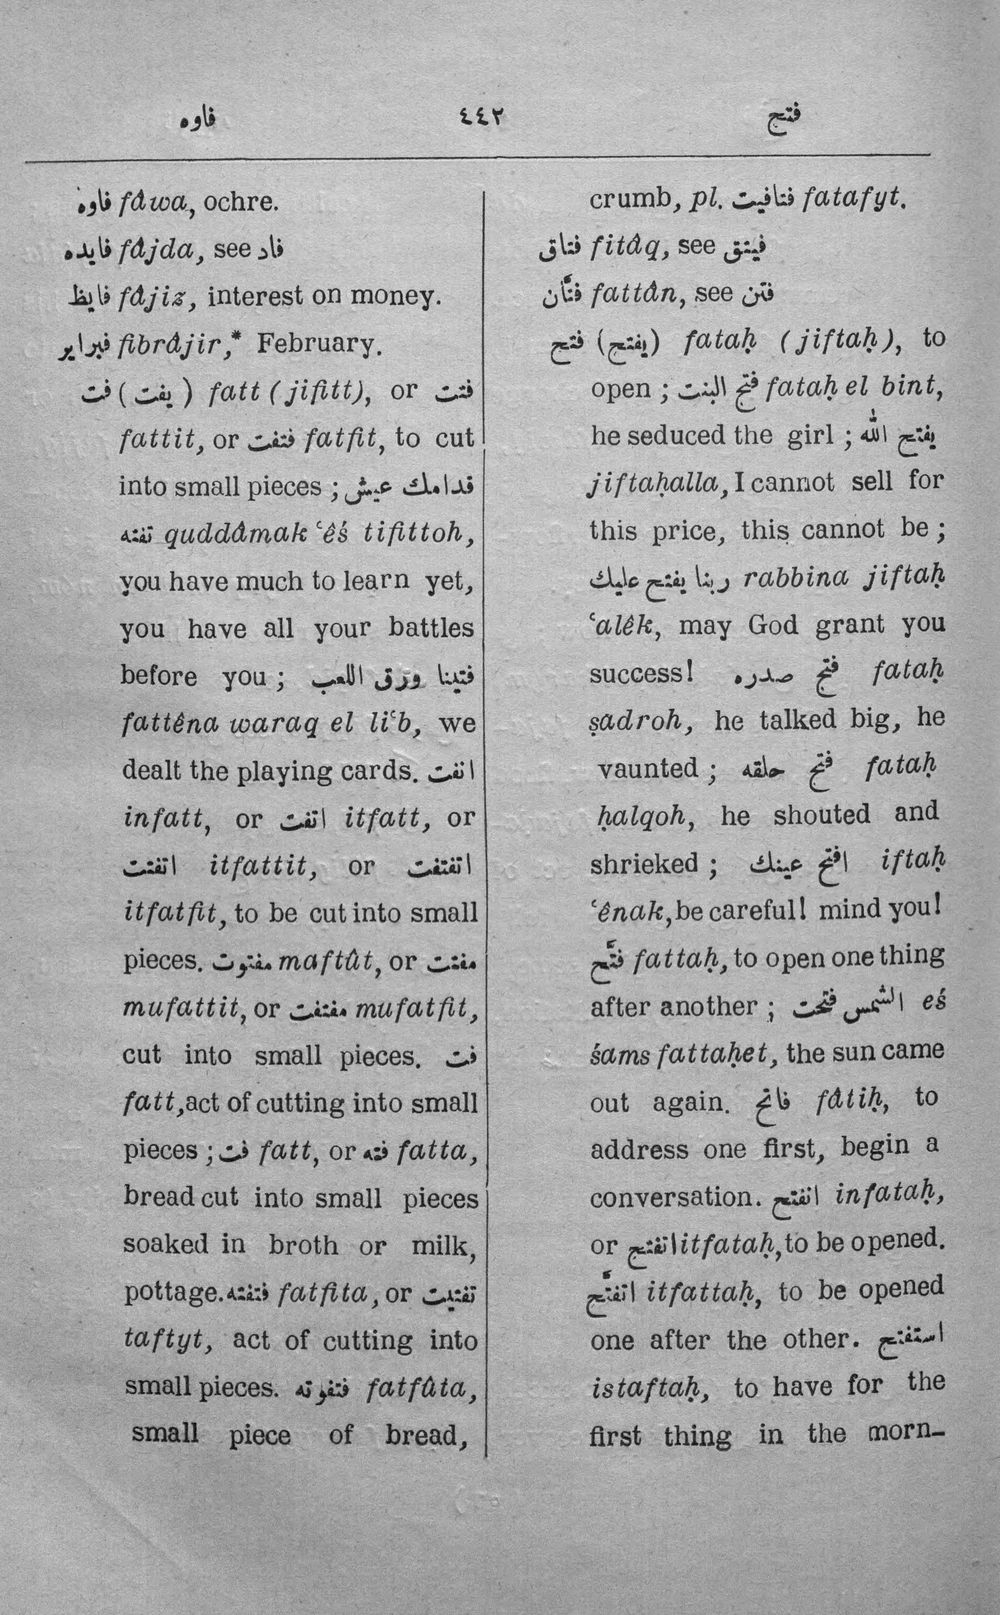 فاوه ٤٤٢ فتح
فاوه fâwa, ochre.
فايده fâjda, see فاد
فايظ fâjiz, interest on money.
فبراير fibrâjir,* February.
فت (يفت) fatt (jifitt), or فتت
fattit, or فتفت fatfit, to cut
into small pieces; قدامك عيش
تفته quddâmak ʿêś tifittoh,
you have much to learn yet,
you have all your battles
before you; فتينا ورق اللعب
fattêna waraq el liʿb, we
dealt the playing cards. انفت
infatt, or اتفت itfatt, or
اتفتت itfattit, or اتفتفت
itfatfit, to be cut into small
pieces. مفتوت maftût, or مفتت
mufattit, or مفتفت mufatfit,
cut into small pieces. فت
fatt, act of cutting into small
pieces; فت fatt, or فته fatta,
bread cut into small pieces
soaked in broth or milk,
pottage. فتفته fatfita, or تفتيت
taftyt, act of cutting into
small pieces. فتفوته fatfûta,
small piece of bread,
crumb, pl. فتافيت fatafyt.
فتاق fitâq, see فيتق
فتّان fattân, see فتن
فتح (يفتح) fataḥ (jiftaḥ), to
open; فتح البنت fataḥ el bint,
he seduced the girl; يفتح الله
jiftaḥalla, I cannot sell for
this price, this cannot be;
ربنا يفتح عليك rabbina jiftaḥ
ʿalêk, may God grant you
success! فتح صدره fataḥ
ṣadroh, he talked big, he
vaunted; فتح حلقه fataḥ
ḥalqoh, he shouted and
shrieked; افتح عينك iftaḥ
ʿênak, be careful! mind you!
فتّح fattaḥ, to open one thing
after another; الشمس فتحت eś
śams fattaḥet, the sun came
out again. فاتح fâtiḥ, to
address one first, begin a
conversation. انفتح infataḥ,
or اتفتح itfataḥ, to be opened.
اتفتّح itfattaḥ, to be opened
one after the other. استفتح
istaftaḥ, to have for the
first thing in the morn-